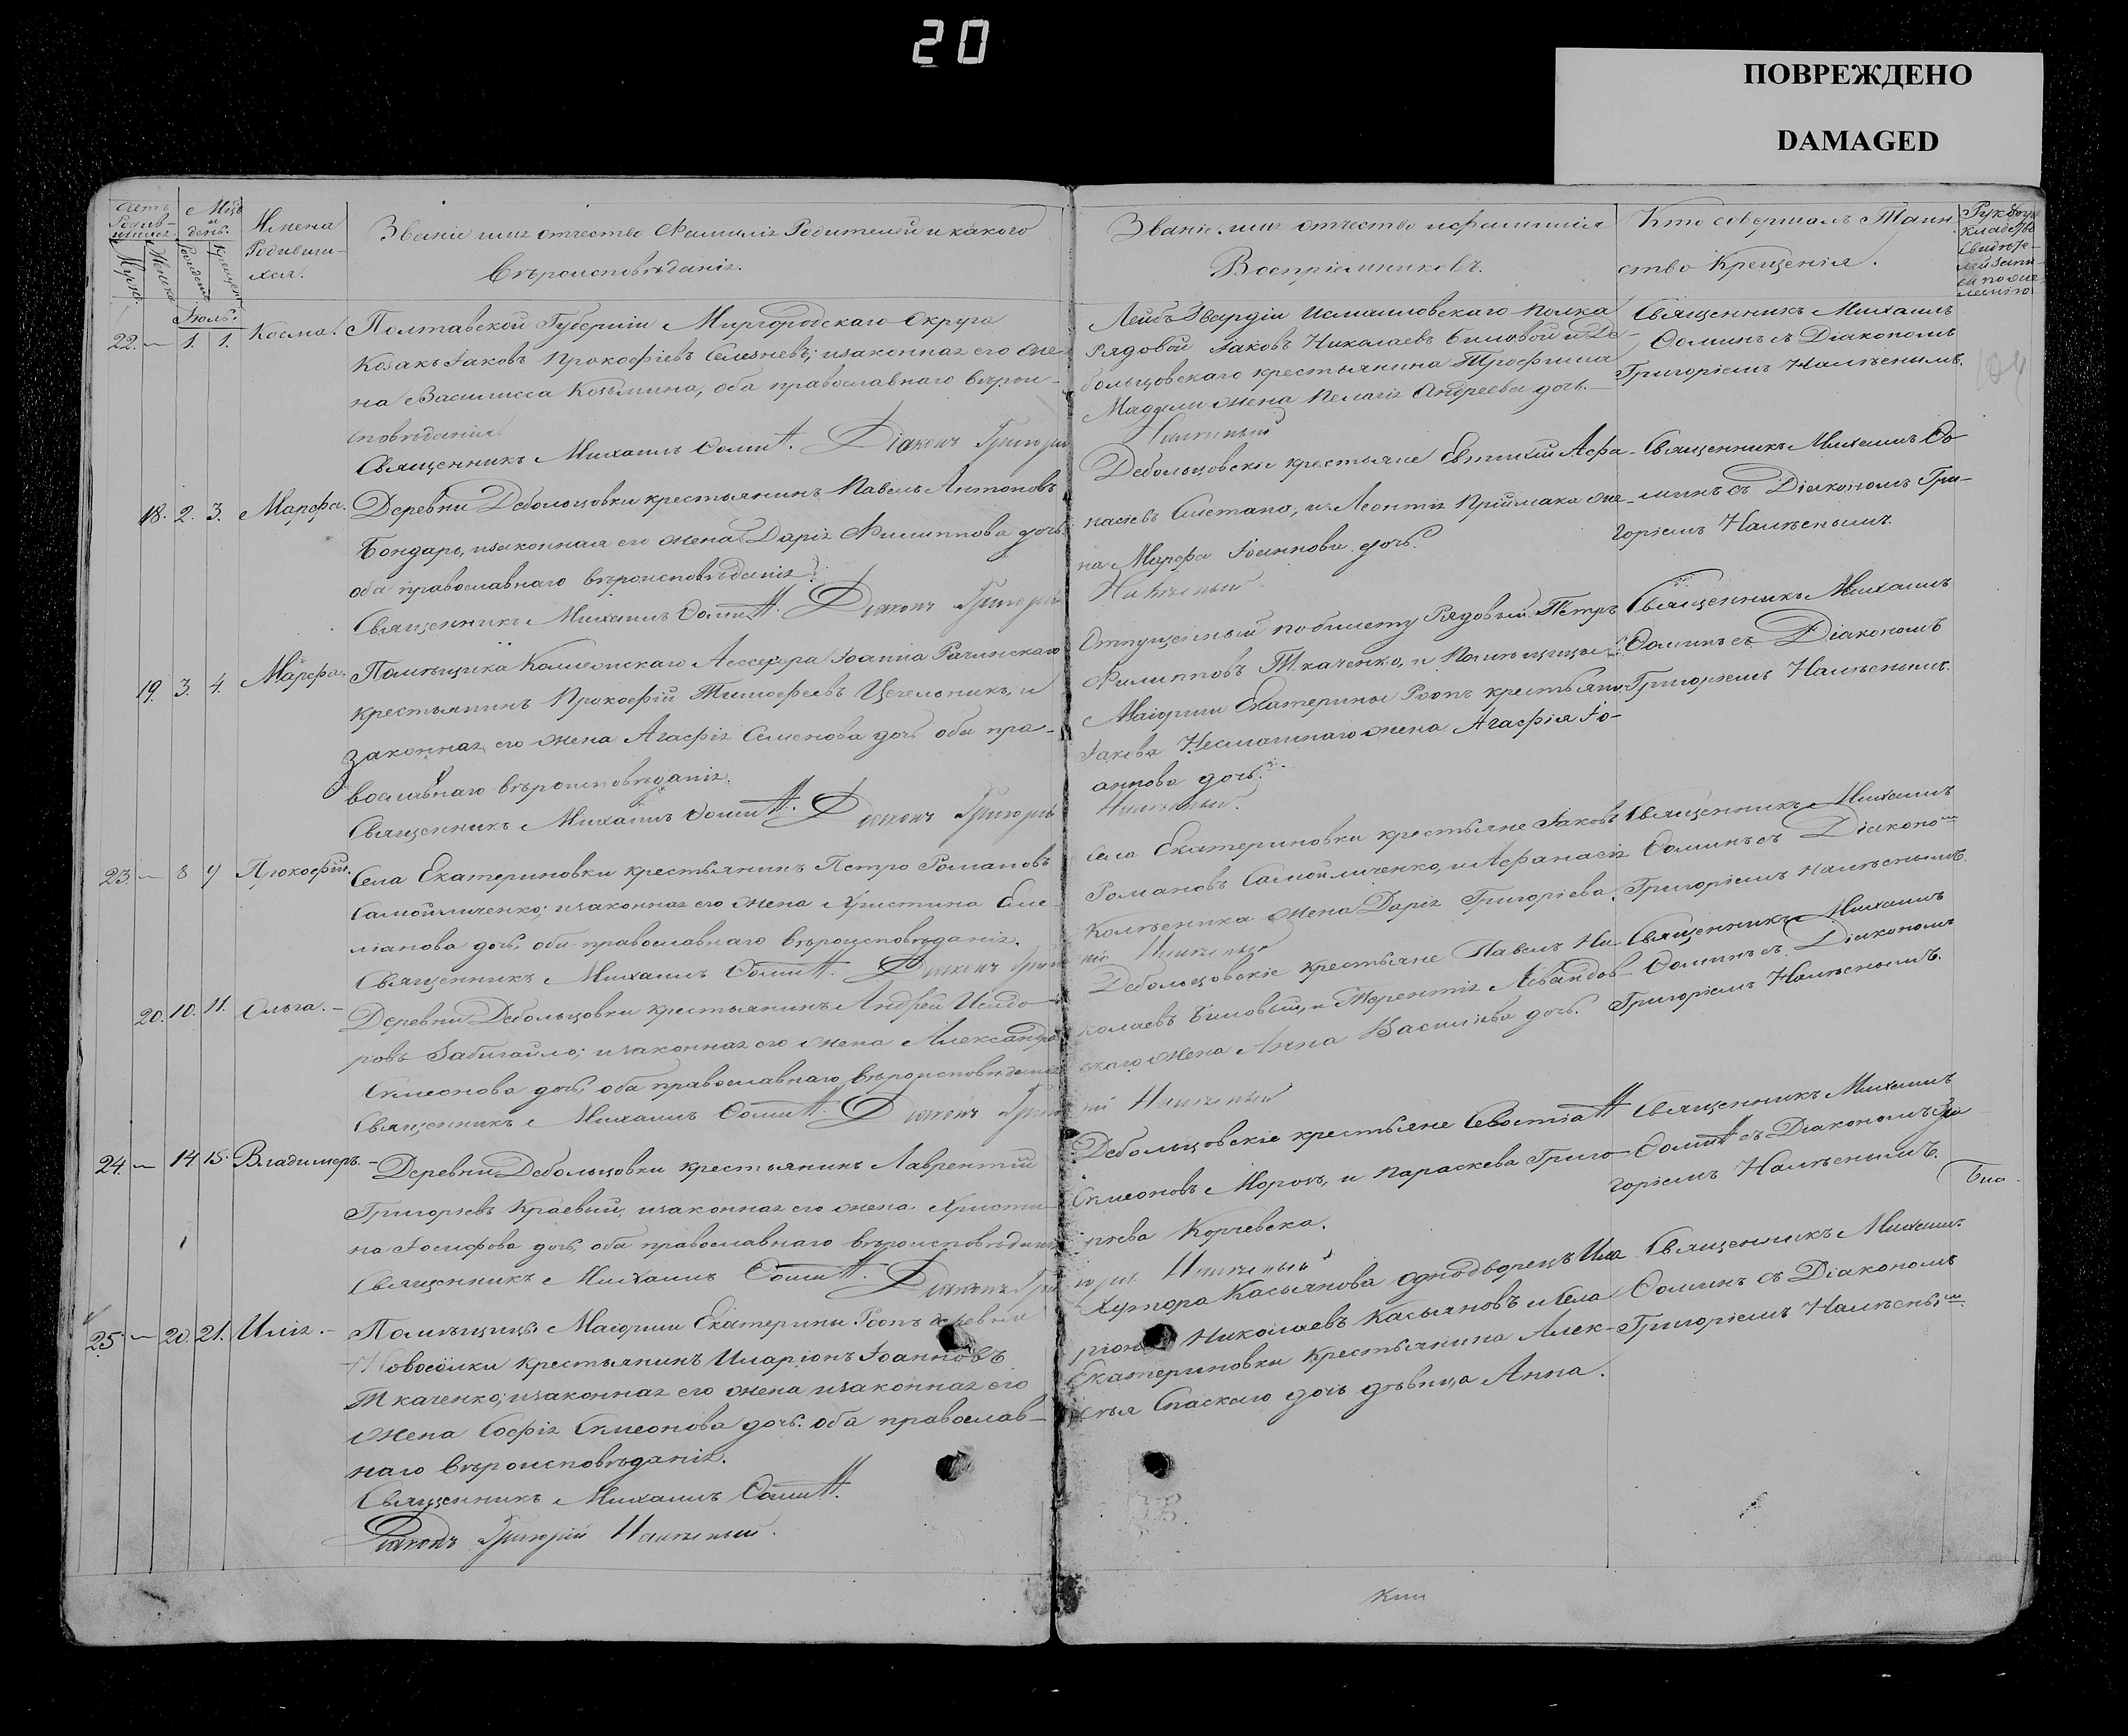 20
ПОВРЕЖДЕНО
DAMAGED
Имена
Родивши-
хся.
Званіе имя отчество Фамилія Родителей и какого
вѣроисповѣданія.
Званіе, имя отчество и фамилія
Воспріемниковъ.
Кто совершалъ Таин
ство Крещенія.
Іюль.
22. — 1. 1. Косма.
Полтавской Губерніи Миргородскаго Округа
Козакъ Іаковъ Прокофіевъ Селезневъ; и законная его же-
на Василисса Козьмина, оба православнаго вѣрои-
сповѣданія.
Священникъ Михаилъ Ѳоминъ. Діаконъ Григорій
Лейбъ Гвардіи Измаиловскаго Полка
Рядовой Іаковъ Николаевъ Биловой и Де-
больцовскаго крестьянина Трофима
жена Пелагія Андреева дочь.
Священникъ Михаилъ
Ѳоминъ съ Діакономъ
Григоріемъ
18. 2. 3. Марѳа.
Деревни Дебольцовки крестьянинъ Павелъ Антоновъ
Бондарь, и законная его жена Дарія Филиппова дочь
оба православнаго вѣроисповѣданія.
Священникъ Михаилъ Ѳоминъ. Діаконъ Григорій
Дебольцовскіе крестьяне Евтихій Аѳа-
насіевъ Сметано, и Леонтія Пріймака же-
на Марѳа Іоаннова дочь.
Священникъ Михаилъ Ѳо-
минъ съ Діакономъ Гри-
горіемъ
19. 3. 4. Марѳа.
Помѣщика Коллежскаго Ассесора Іоанна Рачинскаго
крестьянинъ Прокофій Тимоѳеевъ Цегельникъ, и
законная его жена Агафія Семенова дочь оба пра-
вославнаго вѣроисповѣданія.
Священникъ Михаилъ Ѳоминъ. Діаконъ Григорій
Отпущенный по билету Рядовый Петръ
Филипповъ Ткаченко, и Помѣщицы
Маіорши Екатерины Роопъ крестьяни-
Іакова жена Агафія Іо-
аннова дочь.
Священникъ Михаилъ
Ѳоминъ съ Діакономъ
Григоріемъ
23. — 8 9 Прокофій.
Села Екатериновки крестьянинъ Петро Романовъ
Самойличенко; и законная его жена Христина Еме-
ліанова дочь, оба православнаго вѣроисповѣданія.
Священникъ Михаилъ Ѳоминъ. Діаконъ
Села Екатериновки крестьяне Іаковъ
Романовъ Самойличенко, и Аѳанасія
жена Дарія Григоріева.
Священникъ Михаилъ
Ѳоминъ съ Діаконо
Григоріемъ
20. 10. 11. Ольга. —
Деревни Дебольцовки крестьянинъ Андрей Исидо-
ровъ Забигайло; и законная его жена Александра
Симеонова дочь, оба православнаго вѣроисповѣданія
Священникъ Михаилъ Ѳоминъ. Діаконъ
Дебольцовскіе крестьяне Павелъ Ни-
колаевъ Биловый, и Терентія
скаго жена Анна Василіева дочь.
Священникъ Михаилъ
Ѳоминъ съ Діакономъ
Григоріемъ
24. — 14 15. Владимеръ. —
Деревни Дебольцовки крестьянинъ Лаврентій
Григоріевъ Краевый, и законная его жена Христи-
на Іосифова дочь, оба православнаго вѣроисповѣданія
Священникъ Михаилъ Ѳоминъ. Діаконъ
Дебольцовскіе крестьяне Севостіанъ
Симеоновъ Морозъ, и Параскева Григо-
ріева Корчевска.
Священникъ Михаилъ
Ѳоминъ съ Діакономъ
горіемъ
25. — 20. 21. Илія. —
Помѣщицы Маіорши Екатерины Роопъ деревни
Новосёлки крестьянинъ Иларіонъ Іоанновъ
Ткаченко; и законная его жена и законная его
жена Софія Симеонова дочь. оба православ-
наго вѣроисповѣданія.
Священникъ Михаилъ Ѳоминъ.
Діаконъ Григорій
Хутора Касьянова однодворецъ Ила
ріонъ Николаевъ Касьяновъ и села
Екатериновки крестьянина Алек-
сѣя Спаскаго дочь дѣвица Анна.
Священникъ Михаилъ
Ѳоминъ съ Діакономъ
Григоріемъ